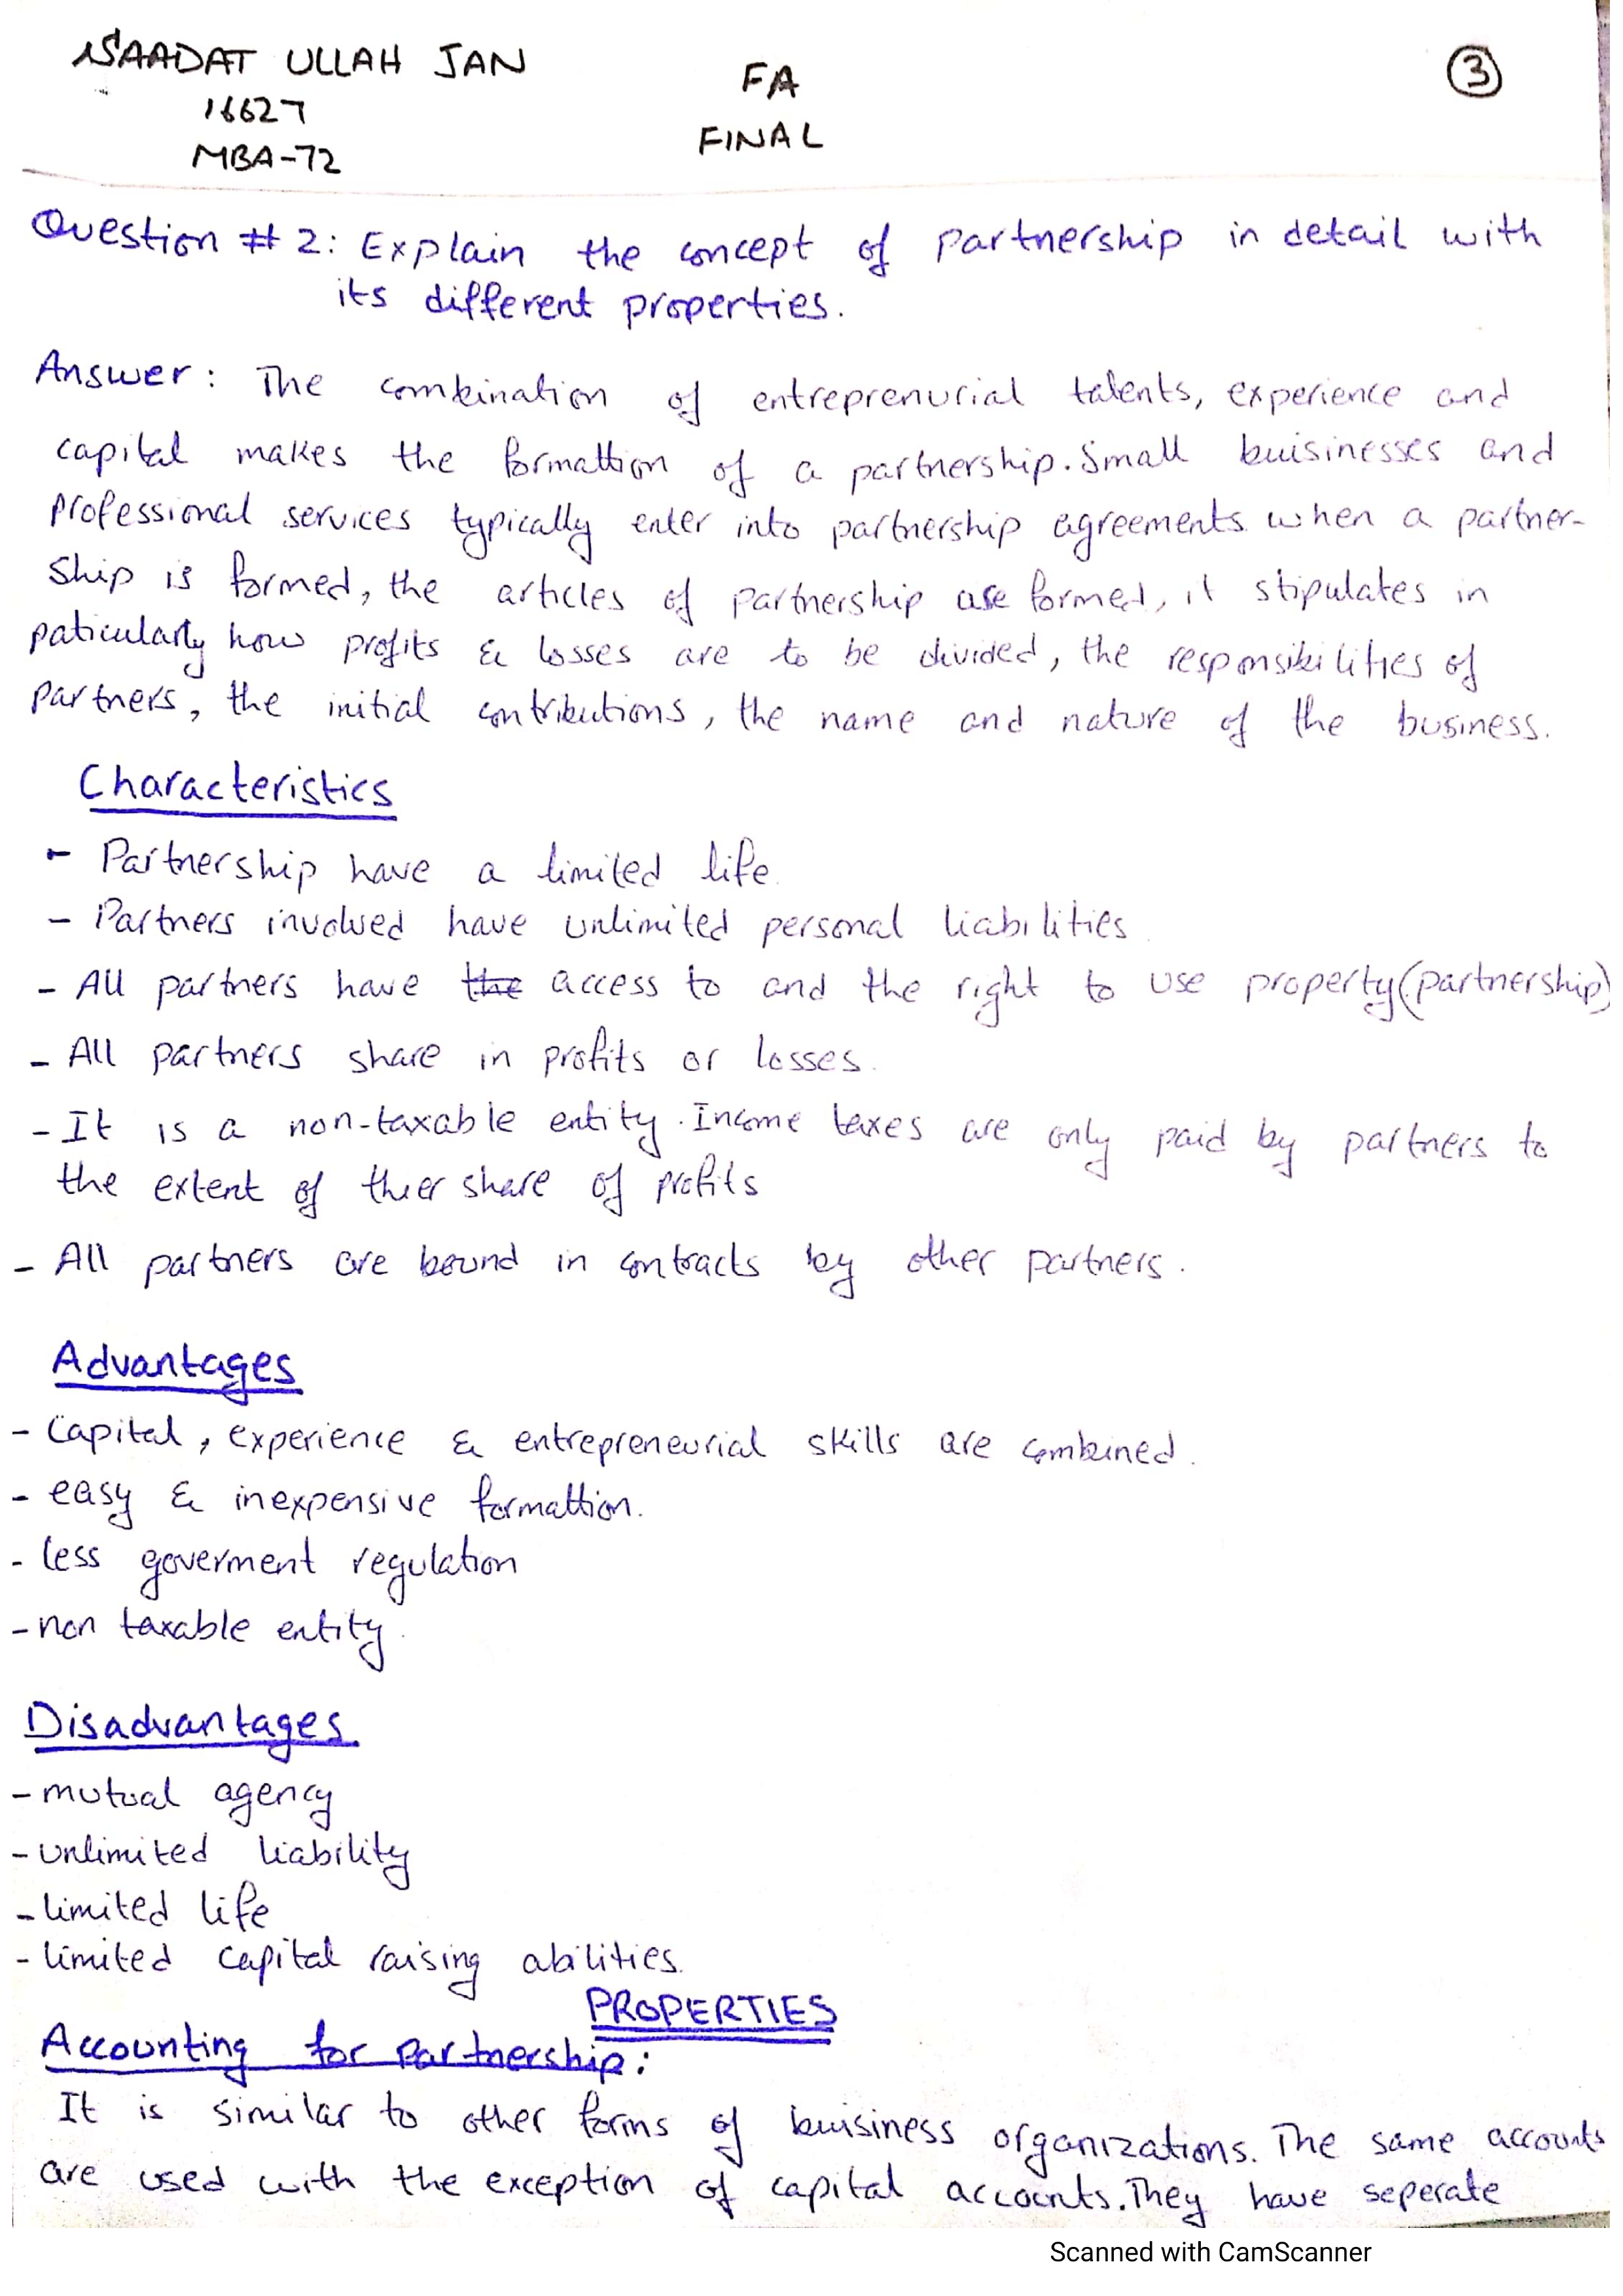 SAADAT ULLAH JAN
16627
MBA-72
FA
FINAL
3
Question # 2: Explain the concept of partnership in detail with
its different properties.
Answer: The combination of entreprenurial talents, experience and
capital makes the formattion of a partnership. Small buisinesses and
professional services typically enter into partnership agreements when a partner-
ship is formed, the articles of partnership are formed, it stipulates in
paticularly how profits & losses are to be divided, the responsibilities of
partners, the initial contributions, the name and nature of the business.
Characteristics
- Partnership have a limited life
- Partners involved have unlimited personal liabilities
- All partners have the access to and the right to use property(partnership)
- All partners share in profits or losses.
- It is a non-taxable entity. Income taxes are only paid by partners to
the extent of thier share of profits
- All partners are bound in contracts by other partners.
Advantages
- Capital, experience & entrepreneurial skills are combined.
- easy & inexpensive formattion.
- less goverment regulation
- non taxable entity.
Disadvantages
- mutual agency
- unlimited liability
- limited life
- limited capital raising abilities.
PROPERTIES
Accounting for partnership:
It is similar to other forms of buisiness organizations. The same accounts
are used with the exception of capital accounts. They have seperate
Scanned with CamScanner